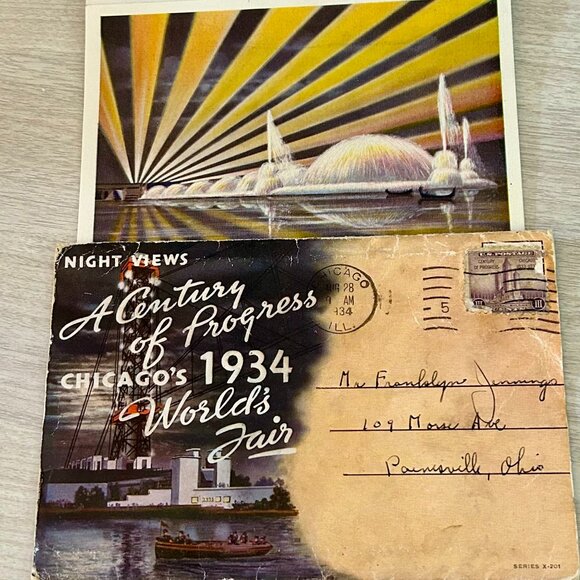 NIGHT VIEWS
A Century
of Progress
CHICAGO'S 1934
World's
Fair
CHICAGO
AUG 28
AM
1934
ILL.
5
U.S. POSTAGE
CENTURY OF PROGRESS CHICAGO
III III
Mr Franklyn Jennings
109 Morse Ave
Painesville, Ohio
SERIES X-201